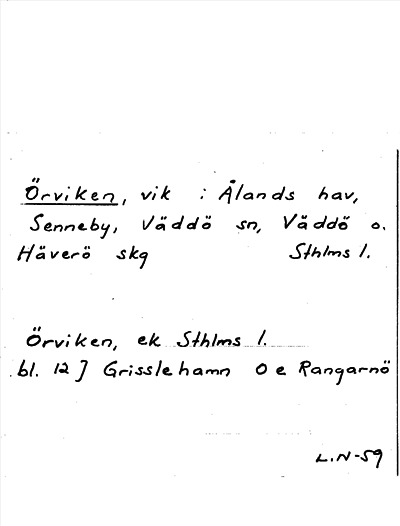 Örviken, vik i Ålands hav,
Senneby, Väddö sn, Väddö o.
Häverö skg Sthlms l.
Örviken, ek Sthlms l.
bl. 12] Grisslehamn O e Rangarnö
L.N-59